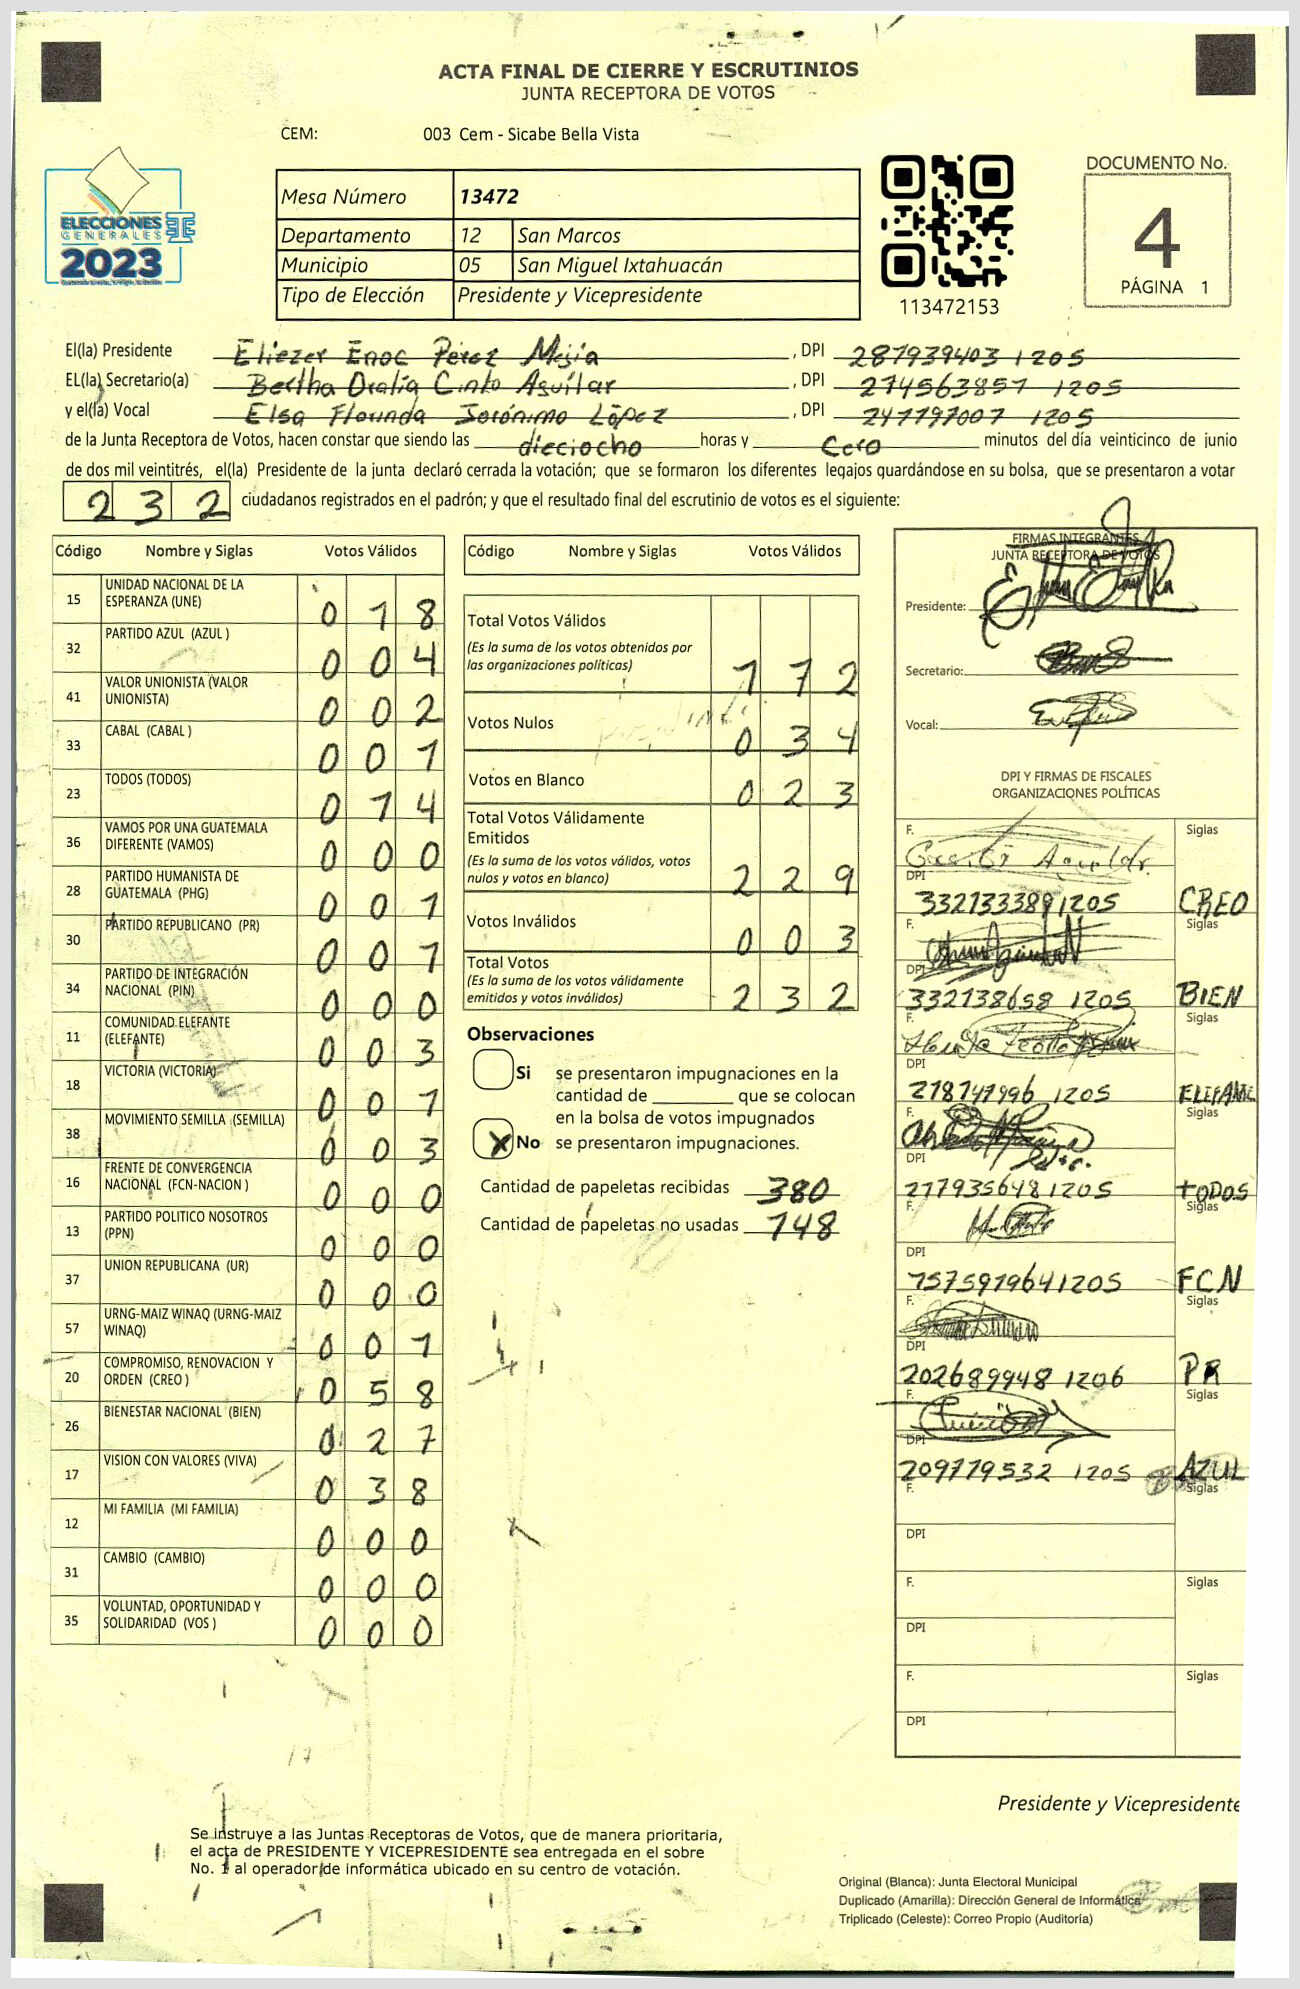 ACTA FINAL DE CIERRE Y ESCRUTINIOS
JUNTA RECEPTORA DE VOTOS
CEM: 003 Cem - Sicabe Bella Vista
ELECCIONES
GENERALES
2023
Mesa Número 13472
Departamento 12 San Marcos
Municipio 05 San Miguel Ixtahuacán
Tipo de Elección Presidente y Vicepresidente
113472153
DOCUMENTO No.
4
PÁGINA 1
El(la) Presidente Eliezer Enoc Pérez Mejía, DPI 287939403 1205
EL(la) Secretario(a) Bertha Oralia Cinto Aguilar, DPI 274563857 1205
y el(la) Vocal Elsa Florinda Jerónimo López, DPI 247797007 1205
de la Junta Receptora de Votos, hacen constar que siendo las dieciocho horas y Cero minutos del día veinticinco de junio
de dos mil veintitrés, el(la) Presidente de la junta declaró cerrada la votación; que se formaron los diferentes legajos guardándose en su bolsa, que se presentaron a votar
232 ciudadanos registrados en el padrón; y que el resultado final del escrutinio de votos es el siguiente:
Código Nombre y Siglas Votos Válidos
15 UNIDAD NACIONAL DE LA ESPERANZA (UNE) 018
32 PARTIDO AZUL (AZUL ) 004
41 VALOR UNIONISTA (VALOR UNIONISTA) 002
33 CABAL (CABAL ) 001
23 TODOS (TODOS) 014
36 VAMOS POR UNA GUATEMALA DIFERENTE (VAMOS) 000
28 PARTIDO HUMANISTA DE GUATEMALA (PHG) 001
30 PARTIDO REPUBLICANO (PR) 001
34 PARTIDO DE INTEGRACIÓN NACIONAL (PIN) 000
11 COMUNIDAD ELEFANTE (ELEFANTE) 003
18 VICTORIA (VICTORIA) 001
38 MOVIMIENTO SEMILLA (SEMILLA) 003
16 FRENTE DE CONVERGENCIA NACIONAL (FCN-NACION ) 000
13 PARTIDO POLITICO NOSOTROS (PPN) 000
37 UNION REPUBLICANA (UR) 000
57 URNG-MAIZ WINAQ (URNG-MAIZ WINAQ) 001
20 COMPROMISO, RENOVACION Y ORDEN (CREO ) 058
26 BIENESTAR NACIONAL (BIEN) 027
17 VISION CON VALORES (VIVA) 038
12 MI FAMILIA (MI FAMILIA) 000
31 CAMBIO (CAMBIO) 000
35 VOLUNTAD, OPORTUNIDAD Y SOLIDARIDAD (VOS ) 000
Código Nombre y Siglas Votos Válidos
Total Votos Válidos
(Es la suma de los votos obtenidos por
las organizaciones políticas) 172
Votos Nulos 034
Votos en Blanco 023
Total Votos Válidamente
Emitidos
(Es la suma de los votos válidos, votos
nulos y votos en blanco) 229
Votos Inválidos 003
Total Votos
(Es la suma de los votos válidamente
emitidos y votos inválidos) 232
Observaciones
Si se presentaron impugnaciones en la
cantidad de ________ que se colocan
en la bolsa de votos impugnados
X No se presentaron impugnaciones.
Cantidad de papeletas recibidas 380
Cantidad de papeletas no usadas 148
FIRMAS INTEGRANTES
JUNTA RECEPTORA DE VOTOS
Presidente:
Secretario:
Vocal:
DPI Y FIRMAS DE FISCALES
ORGANIZACIONES POLÍTICAS
F. Siglas
DPI 332133389 1205 CREO
F. Siglas
DPI 332138658 1205 BIEN
F. Siglas
DPI 218747996 1205 ELEFANTE
F. Siglas
DPI 277935648 1205 TODOS
F. Siglas
DPI 757597964 1205 FCN
F. Siglas
DPI 202689948 1206 PR
F. Siglas
DPI 209779532 1205 AZUL
F. Siglas
DPI
F. Siglas
DPI
F. Siglas
DPI
Presidente y Vicepresidente
Se instruye a las Juntas Receptoras de Votos, que de manera prioritaria,
el acta de PRESIDENTE Y VICEPRESIDENTE sea entregada en el sobre
No. 1 al operador de informática ubicado en su centro de votación.
Original (Blanca): Junta Electoral Municipal
Duplicado (Amarilla): Dirección General de Informática
Triplicado (Celeste): Correo Propio (Auditoría)